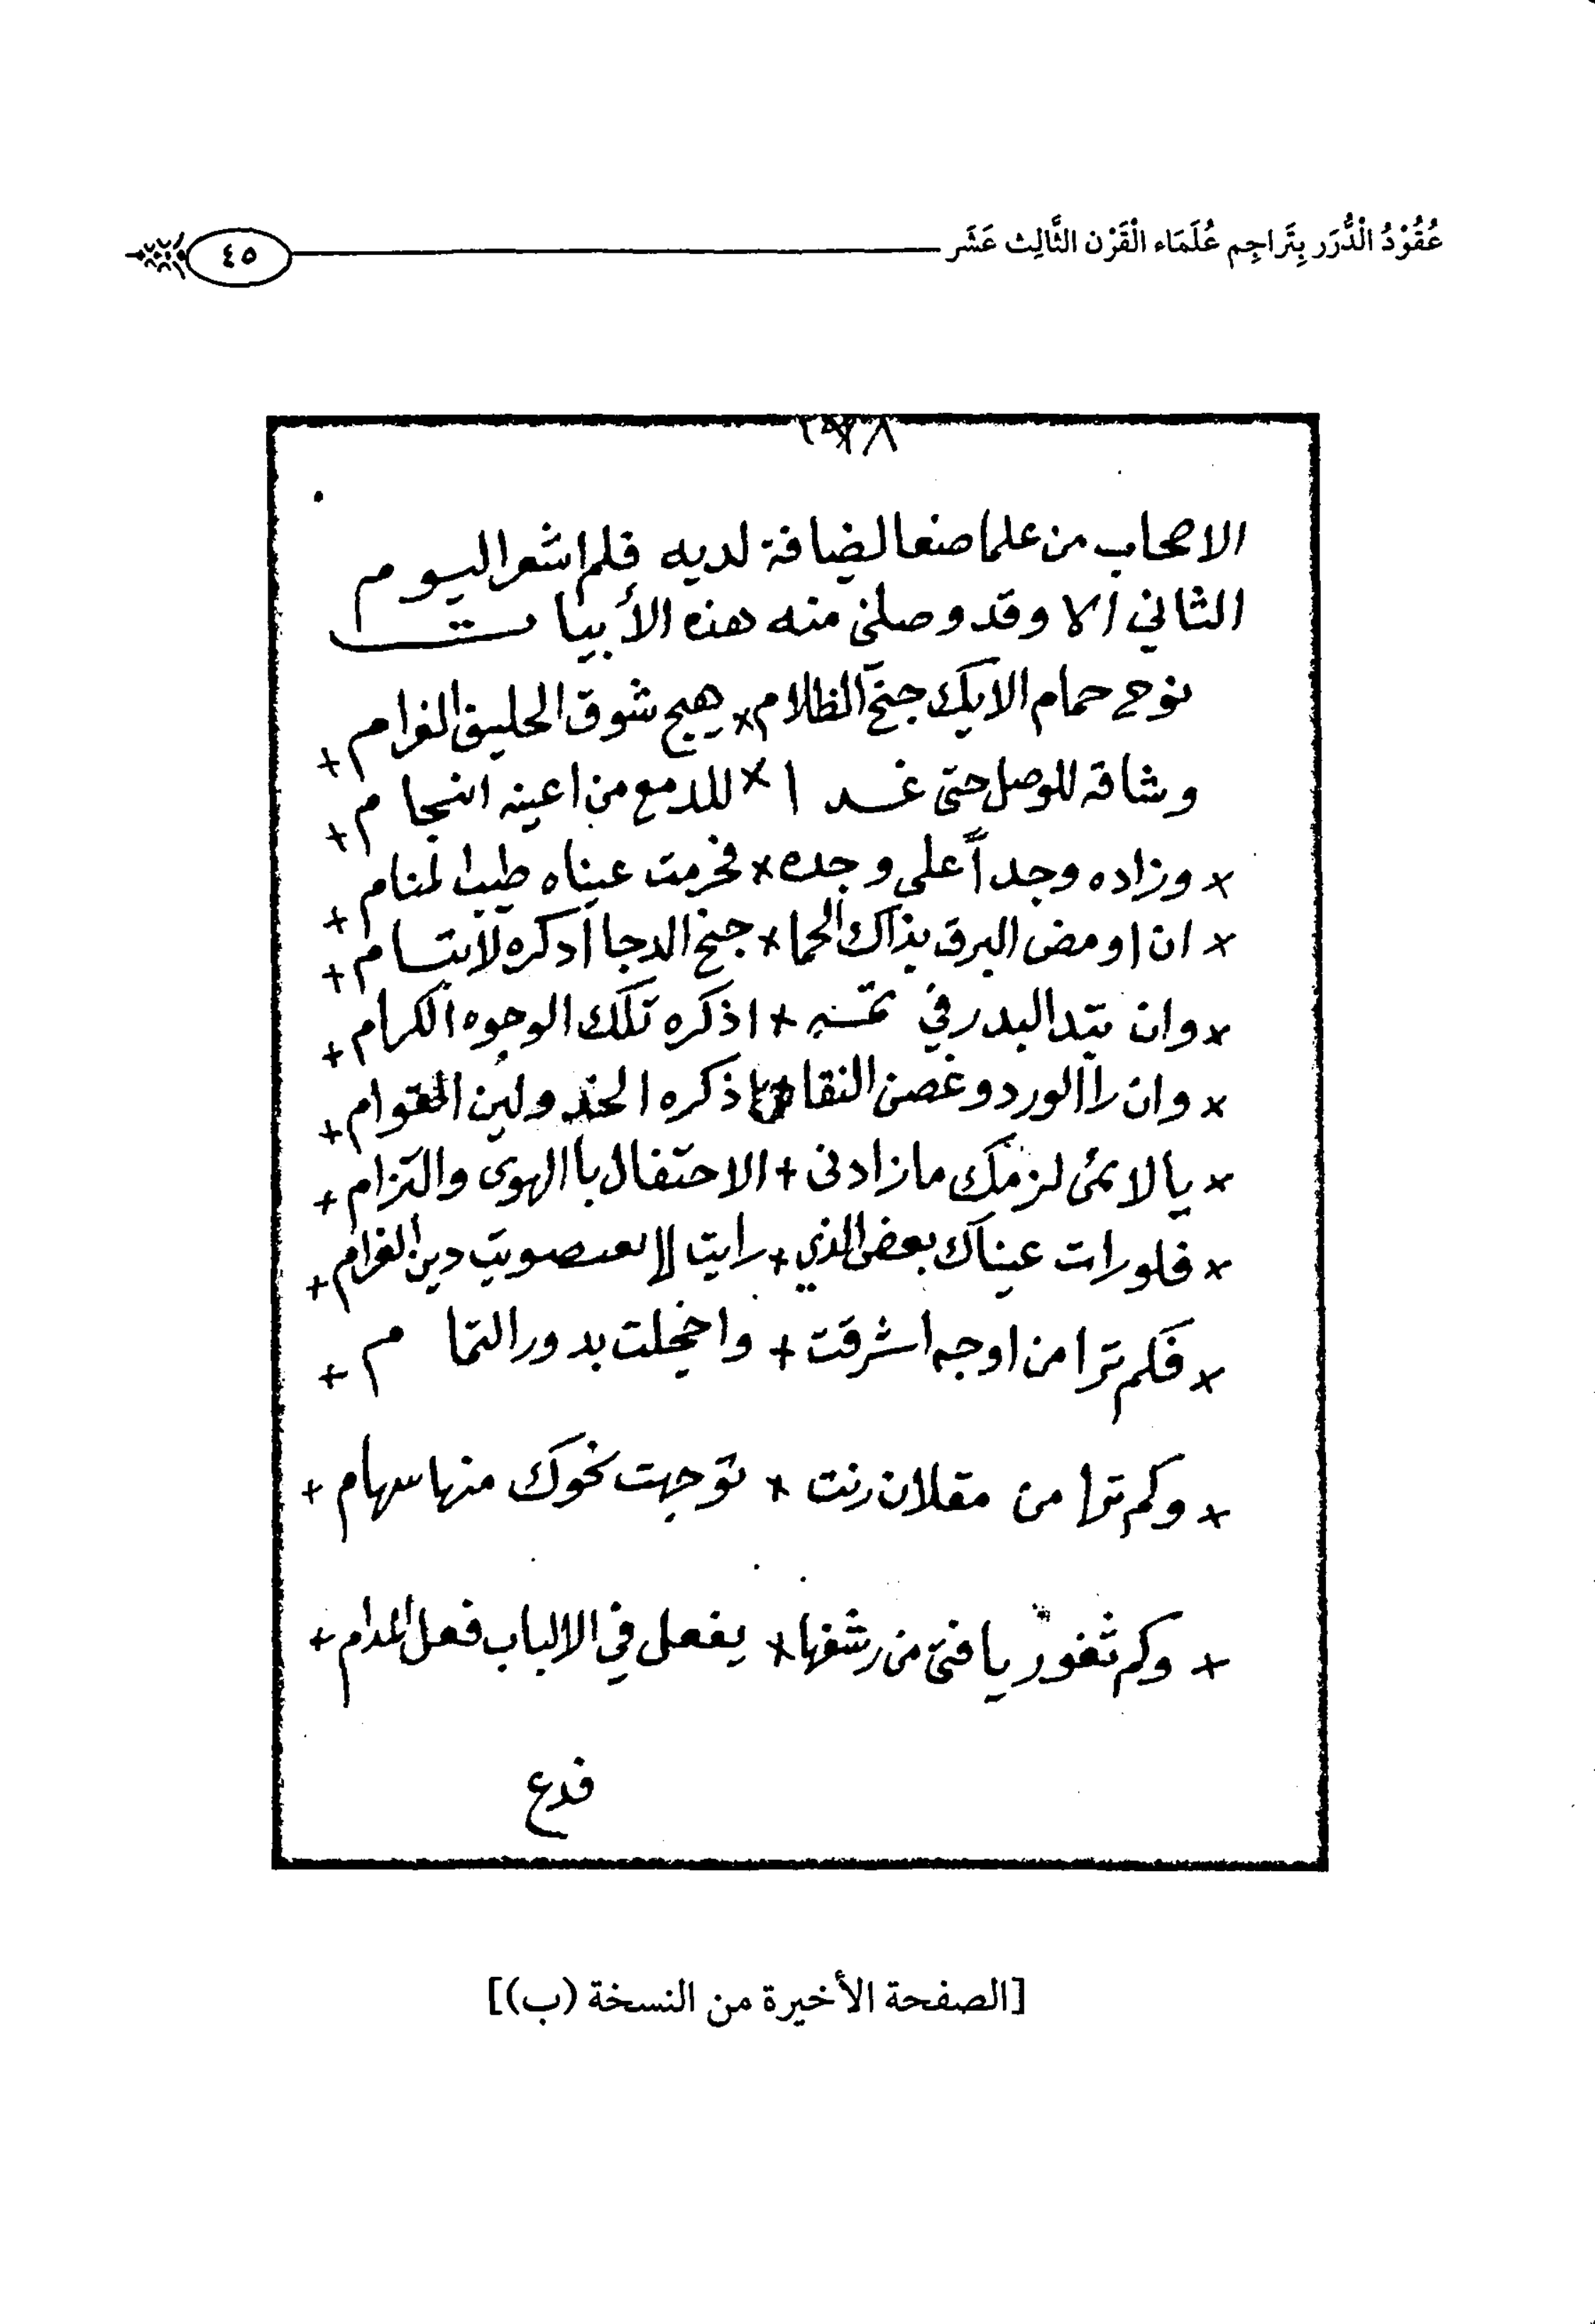 عُقُوْدُ الْدُّرَر بِتَرَاجِم عُلَمَاء الْقَرْن الثَّالِث عَشَر
٤٥
الاصحاب من علما صنعا لضيافة لديه فلم اشعر اليوم
الثاني الا وقد وصلني منه هذه الأبيات
نوح حمام الايك جنح الظلام × يهيج شوق الحليف الغرام +
وشاقه للوصل حتى غدا × للدمع من اعينه انسجام +
× وزاده وجداً على وجده × فحرمت عيناه طيب المنام +
× ان اومض البرق بذاك الحما × جنح الدجا أدكره لابتسام +
× وان بتدا البدر في تمه + اذكره تلك الوجوه الكرام +
× وان را الورد وغصن النقا اذكره الخد ولين القوام +
× يا لائمي لزمك مازادنى + الا حتفال باالهوى والتزام +
× فلو رات عيناك بعض الذي + رايت دين الغرام +
× فكم ترا من اوجه اشرقت + واخجلت بدور التمام +
× وكم ترا من مقلان رنت × توجهت نحوك منها سهام +
+ وكم ثغور يا فتى من رشفها × يفعل في الالباب فعل المدام +
فدع
[الصفحة الأخيرة من النسخة (ب)]